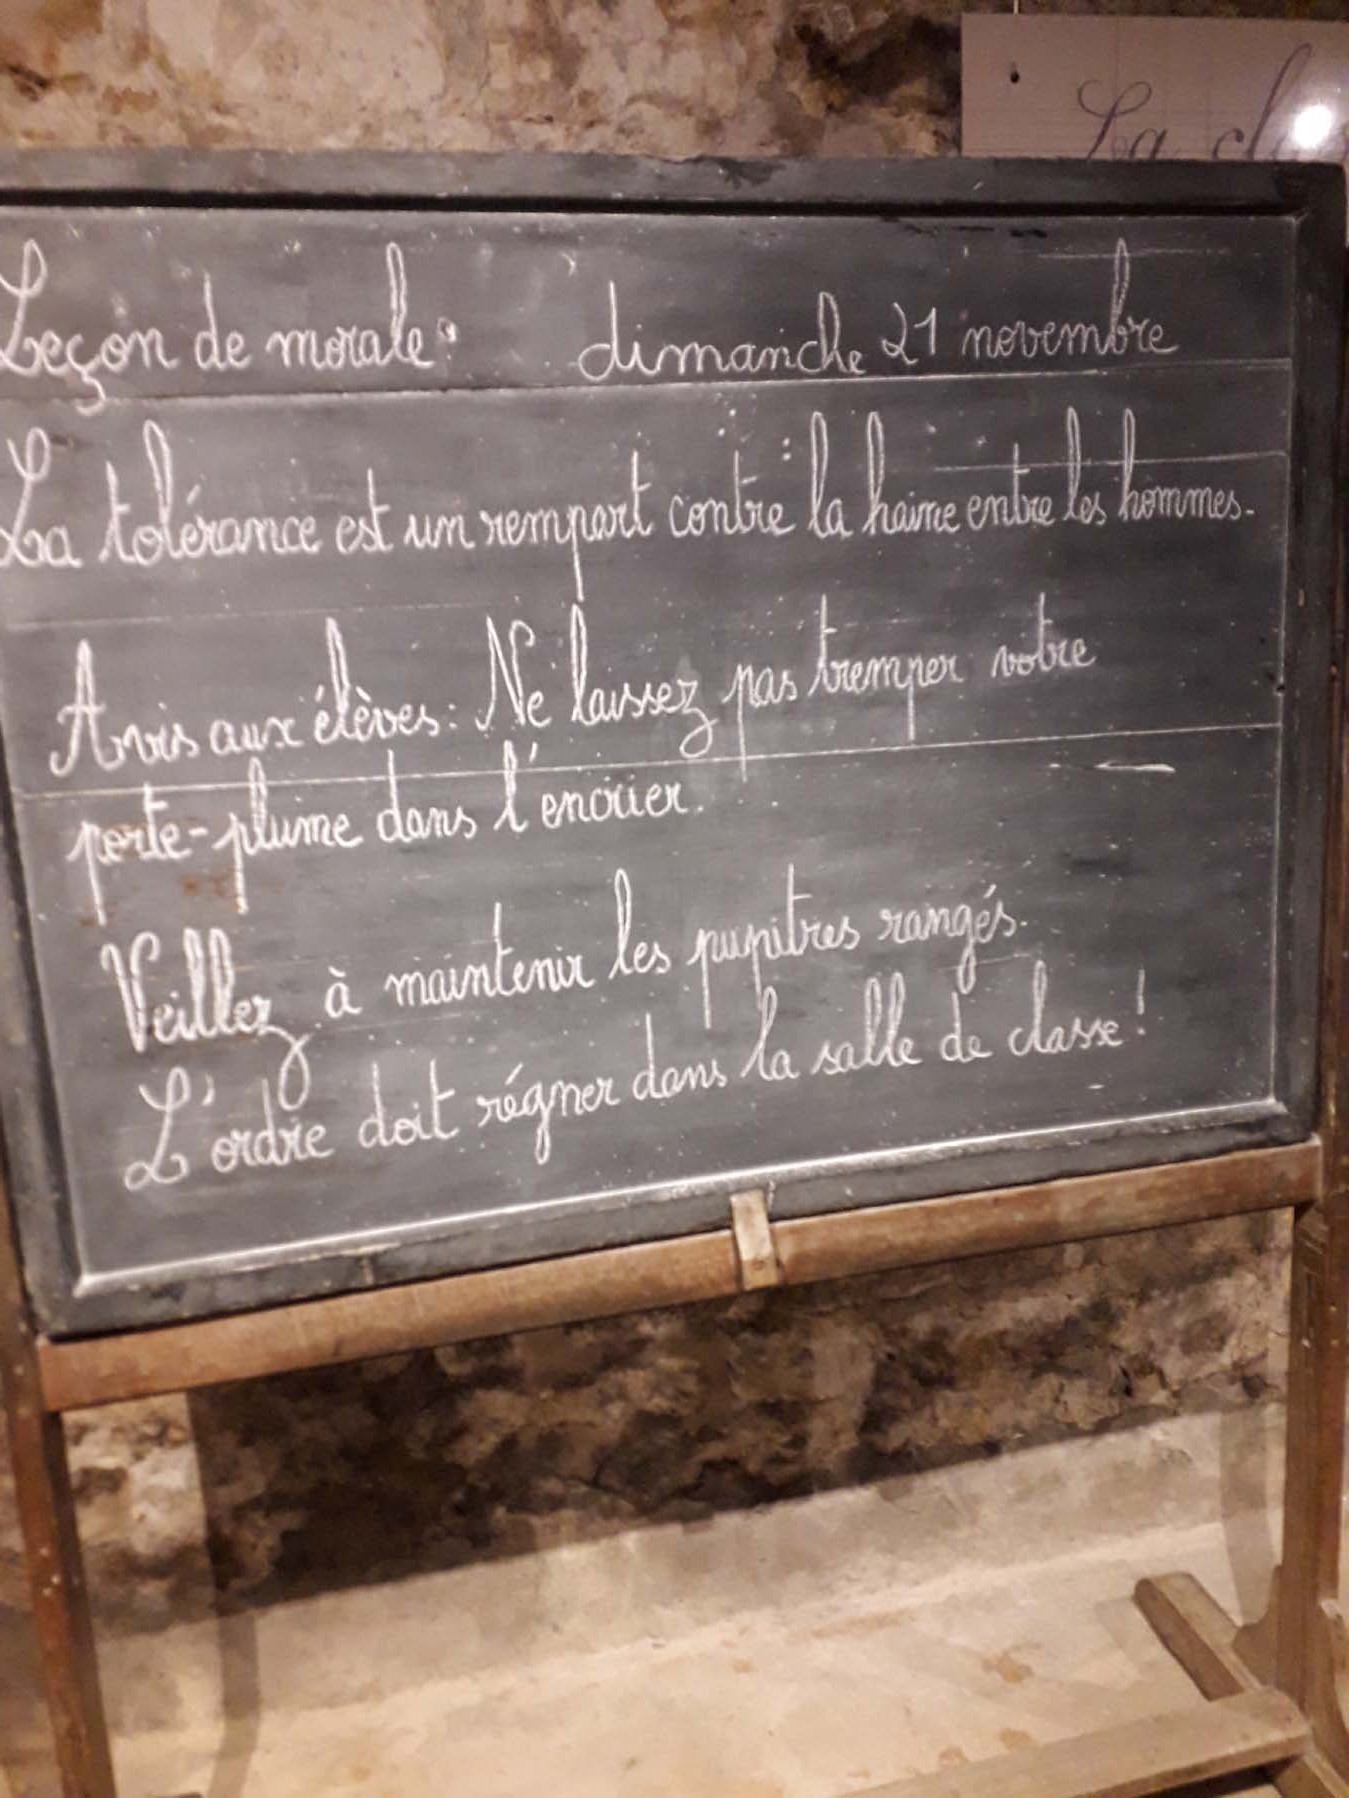 La clas
Leçon de morale : dimanche 21 novembre
La tolérance est un rempart contre la haine entre les hommes.
Avis aux élèves : Ne laissez pas tremper votre
porte-plume dans l'encrier.
Veillez à maintenir les pupitres rangés.
L'ordre doit régner dans la salle de classe !